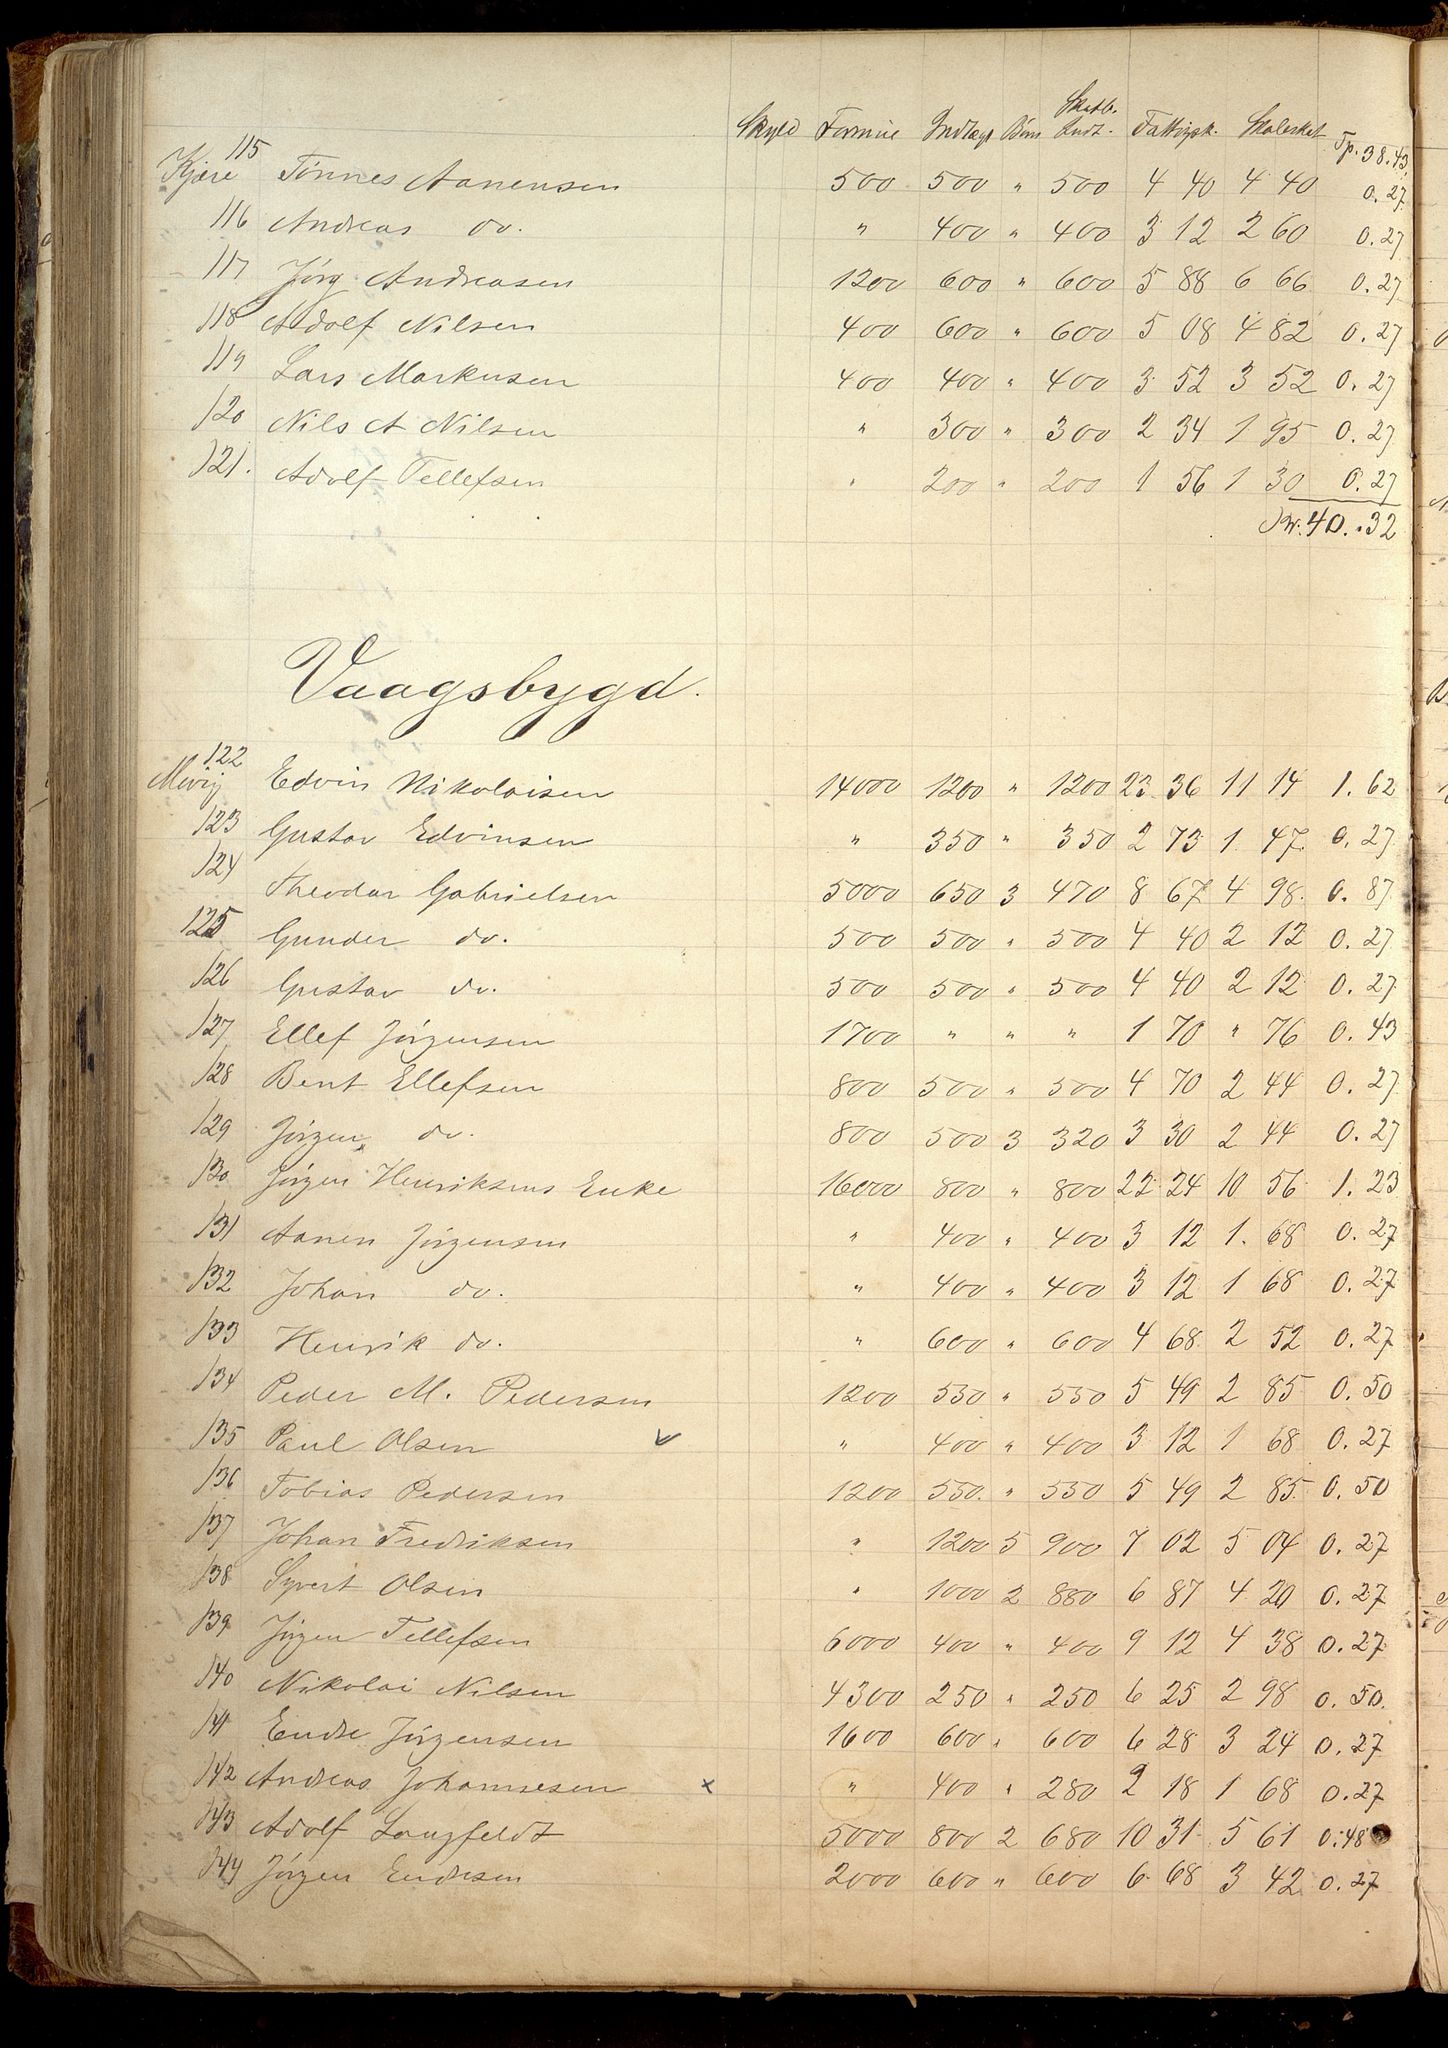 Skyld Formue Indtægt Børn Skatb. Indt. Fattigsk. Skoleskat Tp. 38.43
Kjære 115 Tønnes Aanensen 500 500 " 500 4 40 4 40 0.27
116 Andreas do. " 400 " 400 3 12 2 60 0.27
117 Jørg. Andreasen 1200 600 " 600 5 88 6 66 0.27
118 Adolf Nilsen 400 600 " 600 5 08 4 82 0.27
119 Lars Markusen 400 400 " 400 3 52 3 52 0.27
120 Nils A Nilsen " 300 " 300 2 34 1 95 0.27
121. Adolf Tellefsen " 200 " 200 1 56 1 30 0.27
40.32
Vaagsbygd.
122 Edvin Nikolaisen 14000 1200 " 1200 23 36 11 14 1.62
123 Gustav Edvinsen " 350 " 350 2 73 1 47 0.27
124 Theodor Gabrielsen 5000 650 3 470 8 67 4 98 0.87
125 Gunder do. 500 500 " 500 4 40 2 12 0.27
126 Gustav do. 500 500 " 500 4 40 2 12 0.27
127 Ellef Jørgensen 1700 " " " 1 70 " 76 0.43
128 Bent Ellefsen 800 500 " 500 4 70 2 44 0.27
129 Jørgen do. 800 500 3 320 3 30 2 44 0.27
130 Jørgen Henriksens Enke 16000 800 " 800 22 24 10 56 1.23
131 Aanen Jørgensen " 400 " 400 3 12 1. 68 0.27
132 Johan do. " 400 " 400 3 12 1 68 0.27
133 Henrik do. " 600 " 600 4 68 2 52 0.27
134 Peder M. Pedersen 1200 550 " 550 5 49 2 85 0.50
135 Paul Olsen v " 400 " 400 3 12 1 68 0.27
136 Tobias Pedersen 1200 550. " 550 5 49 2 85 0.50
137 Johan Fredriksen " 1200 5 900 7 02 5 04 0.27
138 Syvert Olsen " 1000 2 880 6 87 4 20 0.27
139 Jørgen Tellefsen 6000 400 " 400 9 12 4 38 0.27
140 Nikolai Nilsen 4300 250 " 250 6 25 2 98 0.50.
141 Endre Jørgensen 1600 600 " 600 6 28 3 24 0.27
142 Andreas Johannesen x " 400 " 280 2 18 1 68 0.27
143 Adolf Langfeldt 5000 800 2 680 10 31 5 61 0.48
144 Jørgen Endresen 2000 600 " 600 6 68 3 42 0.27